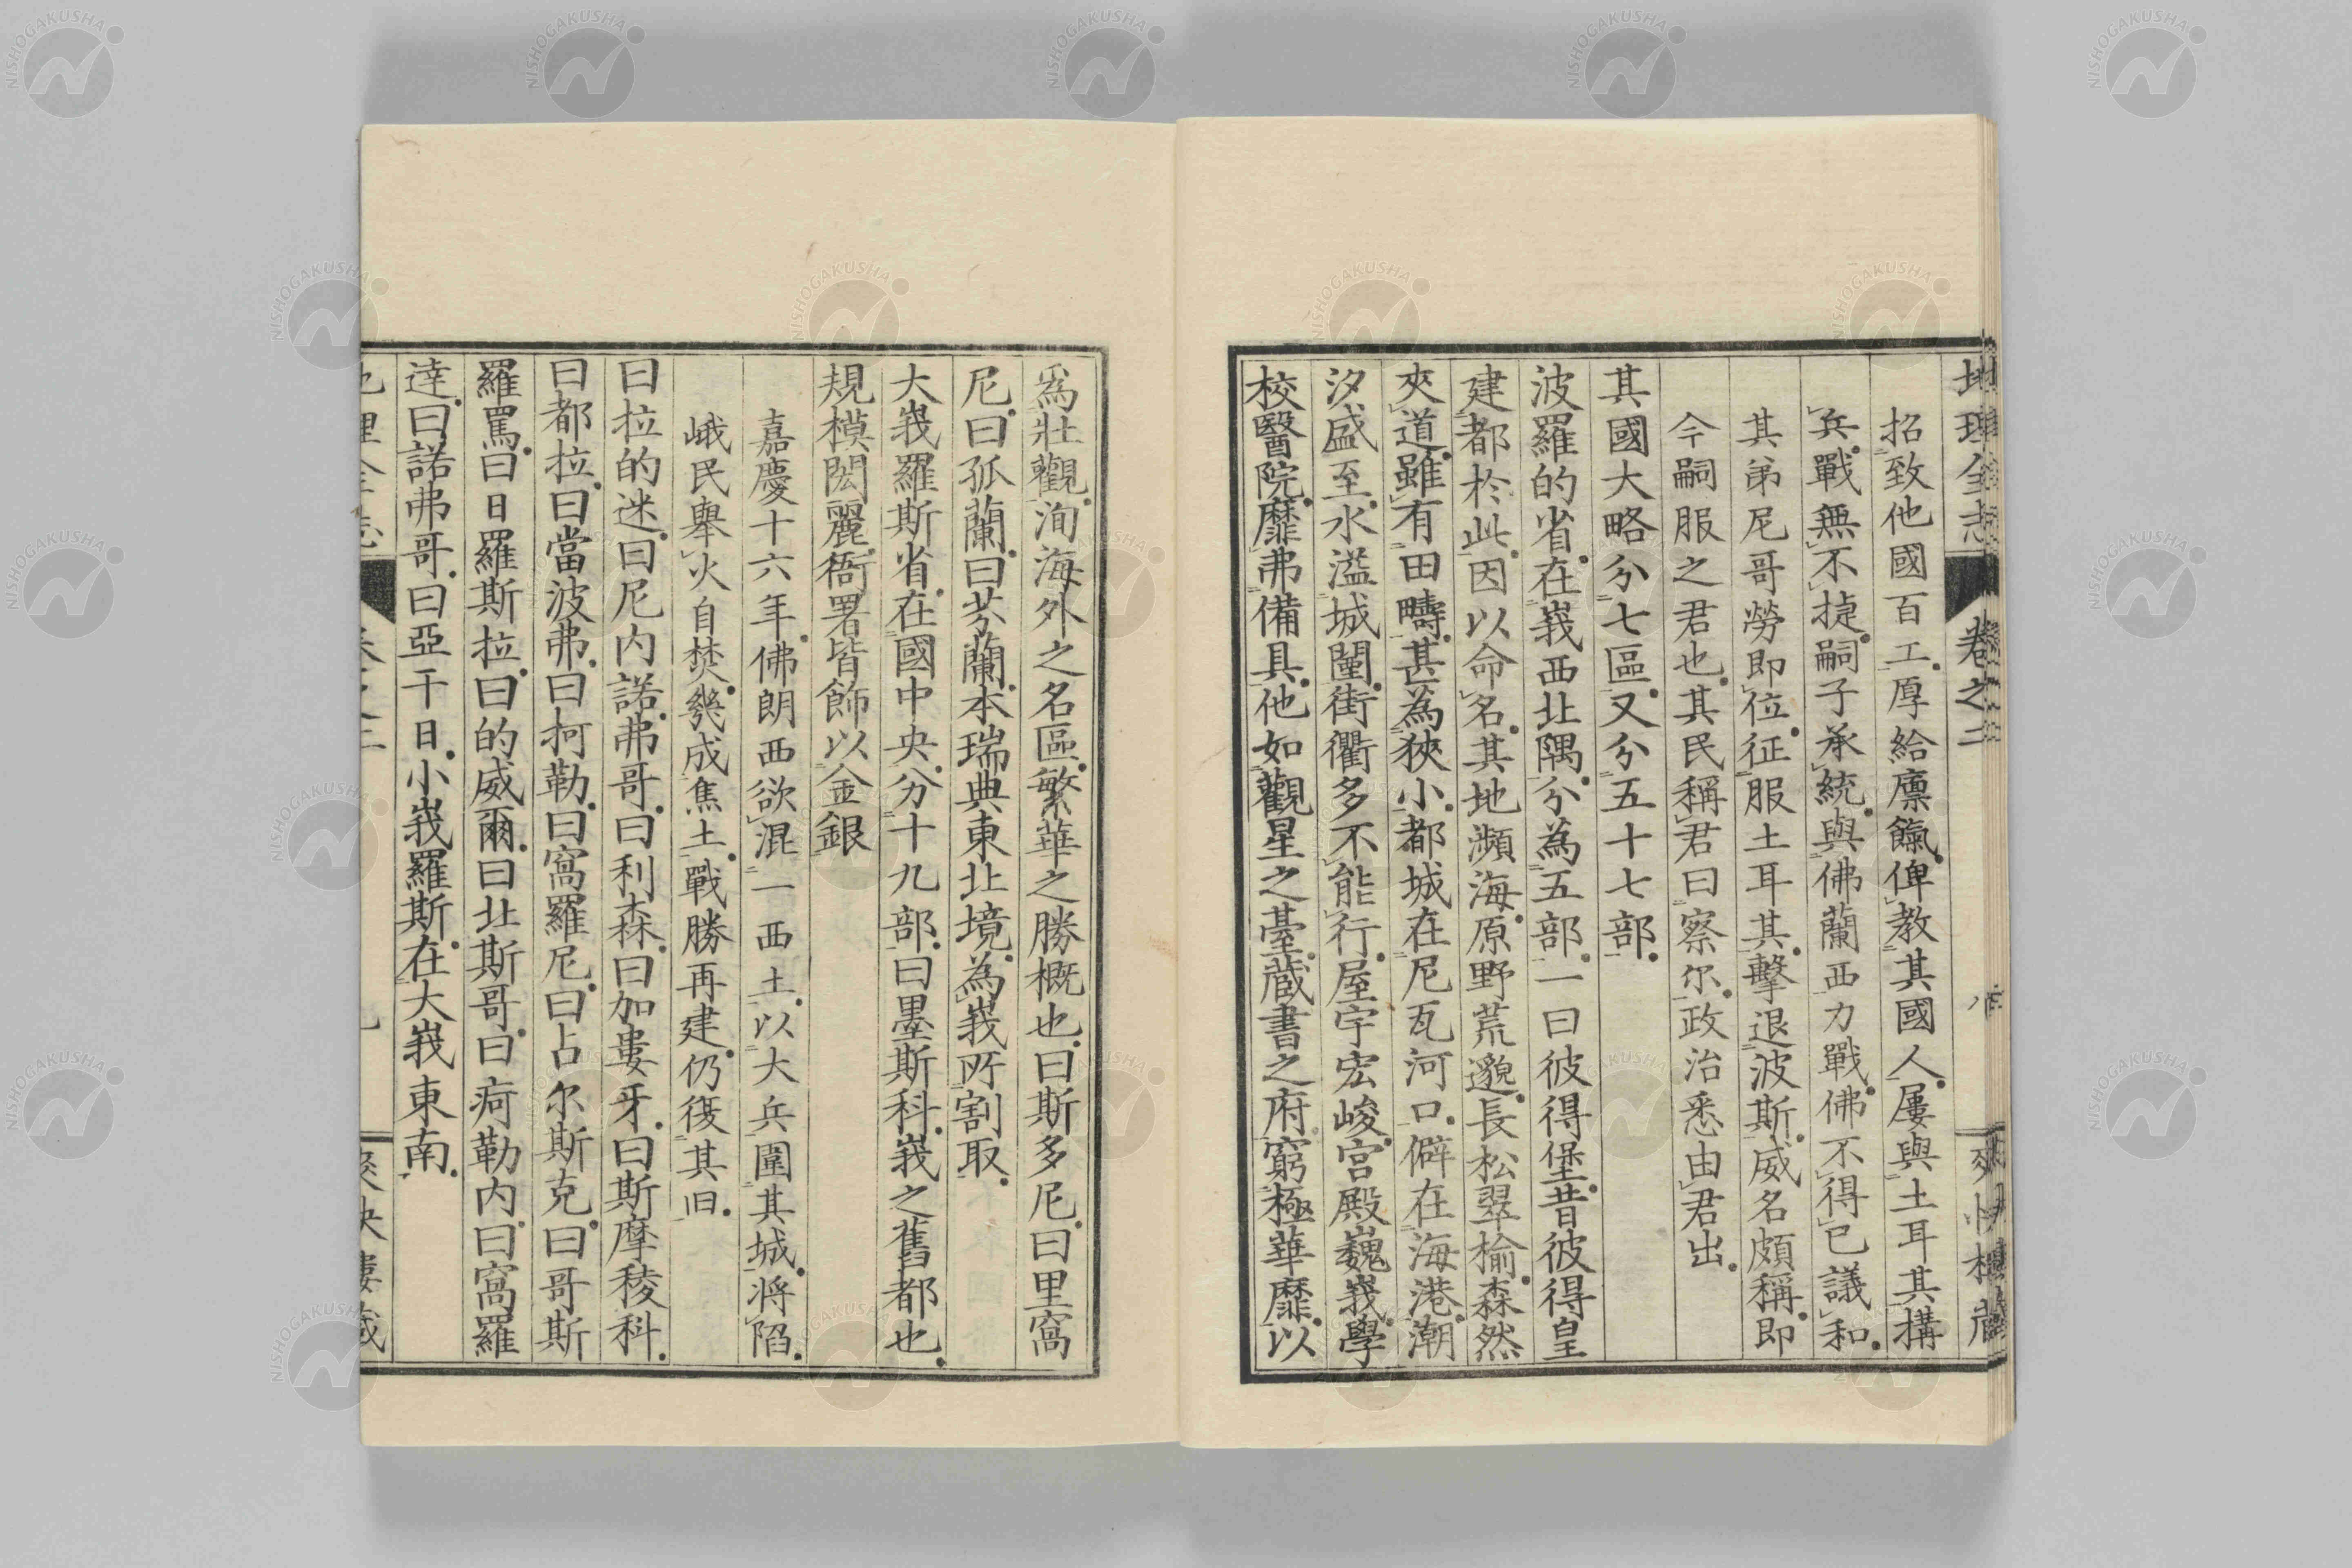 地理全志 卷之二
招致他國百工厚給廩餼俾教其國人屢與土耳其搆
兵戰無不捷嗣子承統與佛蘭西力戰佛不得已議和
其弟尼哥勞即位征服土耳其擊退波斯威名頗稱即
今嗣服之君也其民稱君曰察尔政治悉由君出
其國大略分七區又分五十七部
波羅的省在峩西北隅分為五部一曰彼得堡昔彼得皇
建都於此因以命名其地瀕海原野荒邈長松翠榆森然
夾道雖有田疇甚為狹小都城在尼瓦河口僻在海港潮
汐盛至水溢城闉街衢多不能行屋宇宏峻宮殿巍峩學
校醫院靡弗備具他如觀星之臺藏書之府窮極華靡以
爲壯觀洵海外之名區繁華之勝概也曰斯多尼曰里窩
尼曰孤蘭曰芬蘭本瑞典東北境為峩所割取
大峩羅斯省在國中央分十九部曰墨斯科峩之舊都也
規模閎麗衙署皆飾以金銀
嘉慶十六年佛朗西欲混一西土以大兵圍其城將陷
峨民舉火自焚幾成焦土戰勝再建仍復其旧
曰拉的迷曰尼内諾弗哥曰利森曰加婁牙曰斯摩稜科
曰都拉曰當波弗曰柯勒曰窩羅尼曰占尔斯克曰哥斯
羅罵曰日羅斯拉曰的威爾曰北斯哥曰疴勒内曰窩羅
達曰諾弗哥曰亞干日小峩羅斯在大峩東南